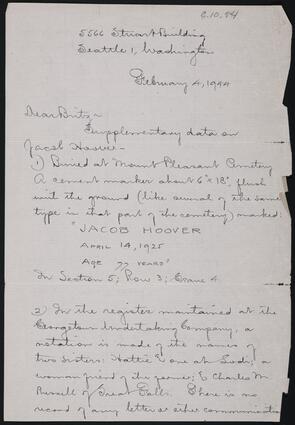 2.10.84
5566 Stuart Building
Seattle 1, Washington
February 4, 1944
Dear Britz -
Supplementary data on
Jacob Hoover -
1) Buried at Mount Pleasant Cemetery
A cement marker about 6" x 18", flush
with the ground (like several of the same
type in that part of the cemetery) marked:
"JACOB HOOVER
APRIL 14, 1925
AGE 77 YEARS"
In Section 5; Row 3; Grave 4
2) In the register maintained at the
Georgetown Undertaking Company, a
notation is made of the names of
two sisters: Hattie & one at Lodi; a
woman friend of the former; & Charles M.
Russell of Great Falls. There is no
record of any letter or other communicate